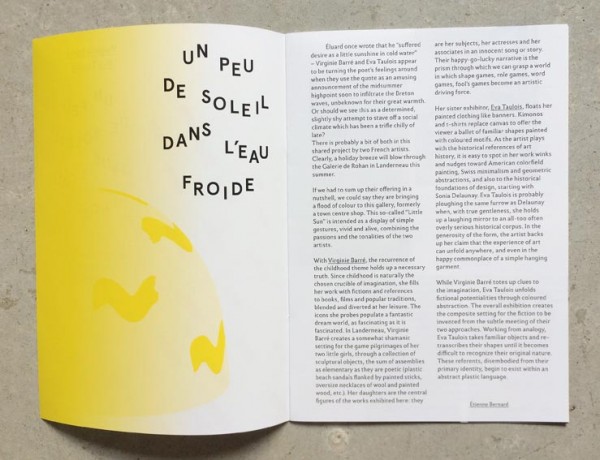 UN PEU
DE SOLEIL
DANS L'EAU
FROIDE
Éluard once wrote that he "suffered
desire as a little sunshine in cold water"
– Virginie Barré and Eva Taulois appear
to be turning the poet's feelings around
when they use the quote as an amusing
announcement of the midsummer
highpoint soon to infiltrate the Breton
waves, unbeknown for their great warmth.
Or should we see this as a determined,
slightly shy attempt to stave off a social
climate which has been a trifle chilly of
late?
There is probably a bit of both in this
shared project by two French artists.
Clearly, a holiday breeze will blow through
the Galerie de Rohan in Landerneau this
summer.
If we had to sum up their offering in a
nutshell, we could say they are bringing
a flood of colour to this gallery, formerly
a town centre shop. This so-called "Little
Sun" is intended as a display of simple
gestures, vivid and alive, combining the
passions and the tonalities of the two
artists.
With Virginie Barré, the recurrence of
the childhood theme holds up a necessary
truth. Since childhood is naturally the
chosen crucible of imagination, she fills
her work with fictions and references
to books, films and popular traditions,
blended and diverted at her leisure. The
icons she probes populate a fantastic
dream world, as fascinating as it is
fascinated. In Landerneau, Virginie
Barré creates a somewhat shamanic
setting for the game pilgrimages of her
two little girls, through a collection of
sculptural objects, the sum of assemblies
as elementary as they are poetic (plastic
beach sandals flanked by painted sticks,
oversize necklaces of wool and painted
wood, etc.). Her daughters are the central
figures of the works exhibited here: they
are her subjects, her actresses and her
associates in an innocent song or story.
Their happy-go-lucky narrative is the
prism through which we can grasp a world
in which shape games, role games, word
games, fool's games become an artistic
driving force.
Her sister exhibitor, Eva Taulois, floats her
painted clothing like banners. Kimonos
and t-shirts replace canvas to offer the
viewer a ballet of familiar shapes painted
with coloured motifs. As the artist plays
with the historical references of art
history, it is easy to spot in her work winks
and nudges toward American colorfield
painting, Swiss minimalism and geometric
abstractions, and also to the historical
foundations of design, starting with
Sonia Delaunay. Eva Taulois is probably
ploughing the same furrow as Delaunay
when, with true gentleness, she holds
up a laughing mirror to an all-too often
overly serious historical corpus. In the
generosity of the form, the artist backs
up her claim that the experience of art
can unfold anywhere, and even in the
happy commonplace of a simple hanging
garment
While Virginie Barré totes up clues to
the imagination, Eva Taulois unfolds
fictional potentialities through coloured
abstraction. The overall exhibition creates
the composite setting for the fiction to be
invented from the subtle meeting of their
two approaches. Working from analogy,
Eva Taulois takes familiar objects and re-
transcribes their shapes until it becomes
difficult to recognize their original nature.
These referents, disembodied from their
primary identity, begin to exist within an
abstract plastic language.
Étienne Bernard